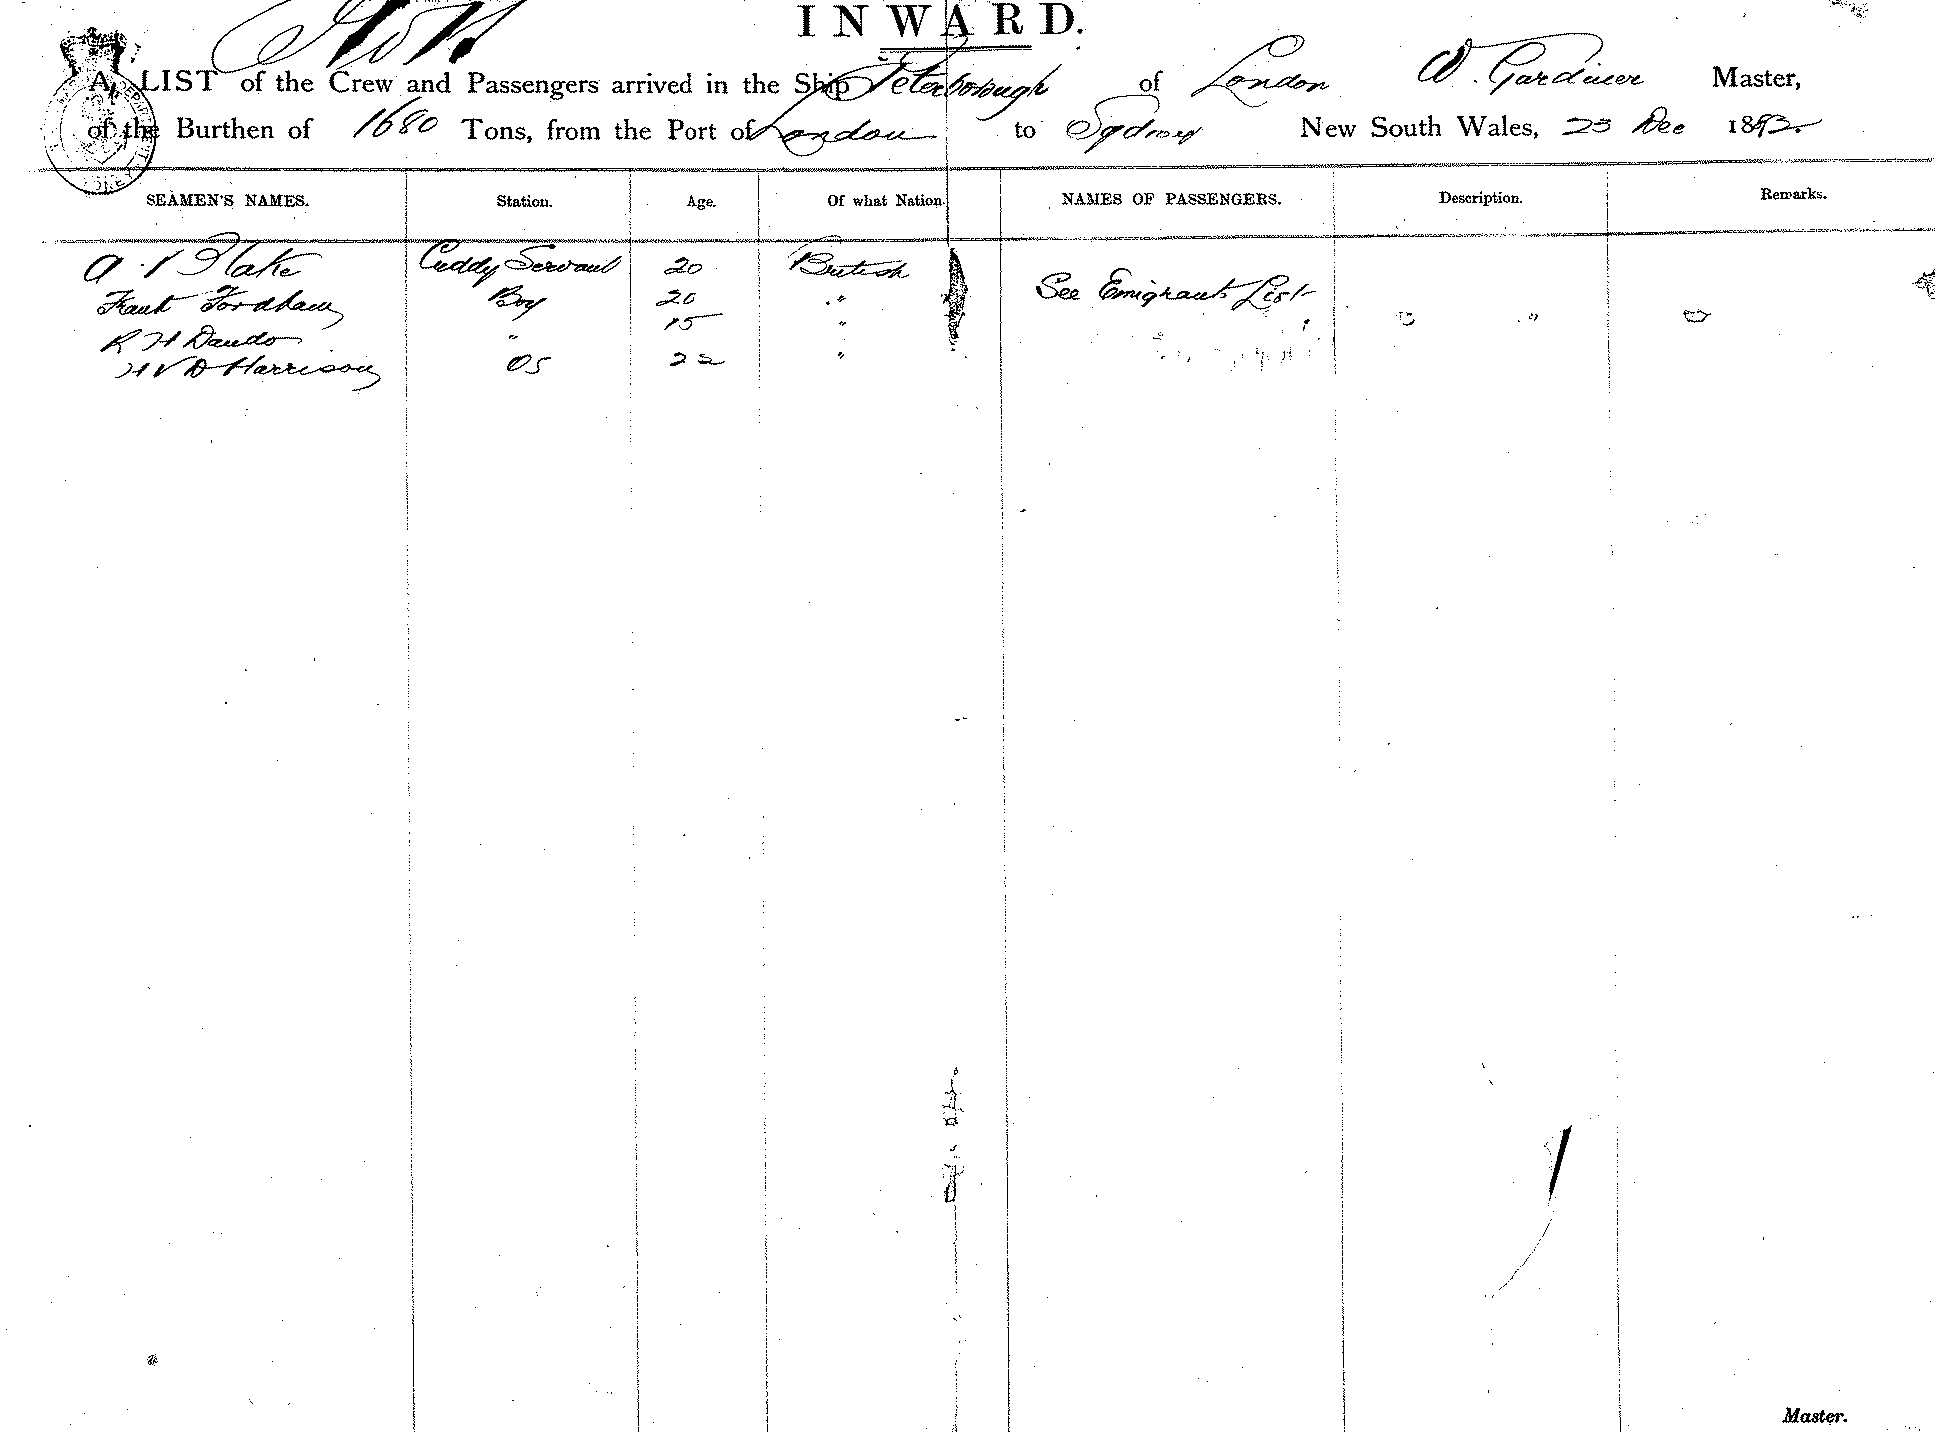 INWARD.
A LIST of the Crew and Passengers arrived in the Ship Peterborough of London W. Gardiner Master,
of the Burthen of 1680 Tons, from the Port of London to Sydney New South Wales, 23 Dec 1892.
SEAMEN'S NAMES. Station. Age. Of what Nation. NAMES OF PASSENGERS. Description. Remarks.
A Blake Cuddy Servant 20 British
See Emigrants List
Frank Fordham Boy 20 "
R H Dando " 15 "
H V D Harrison OS 22 "
Master.